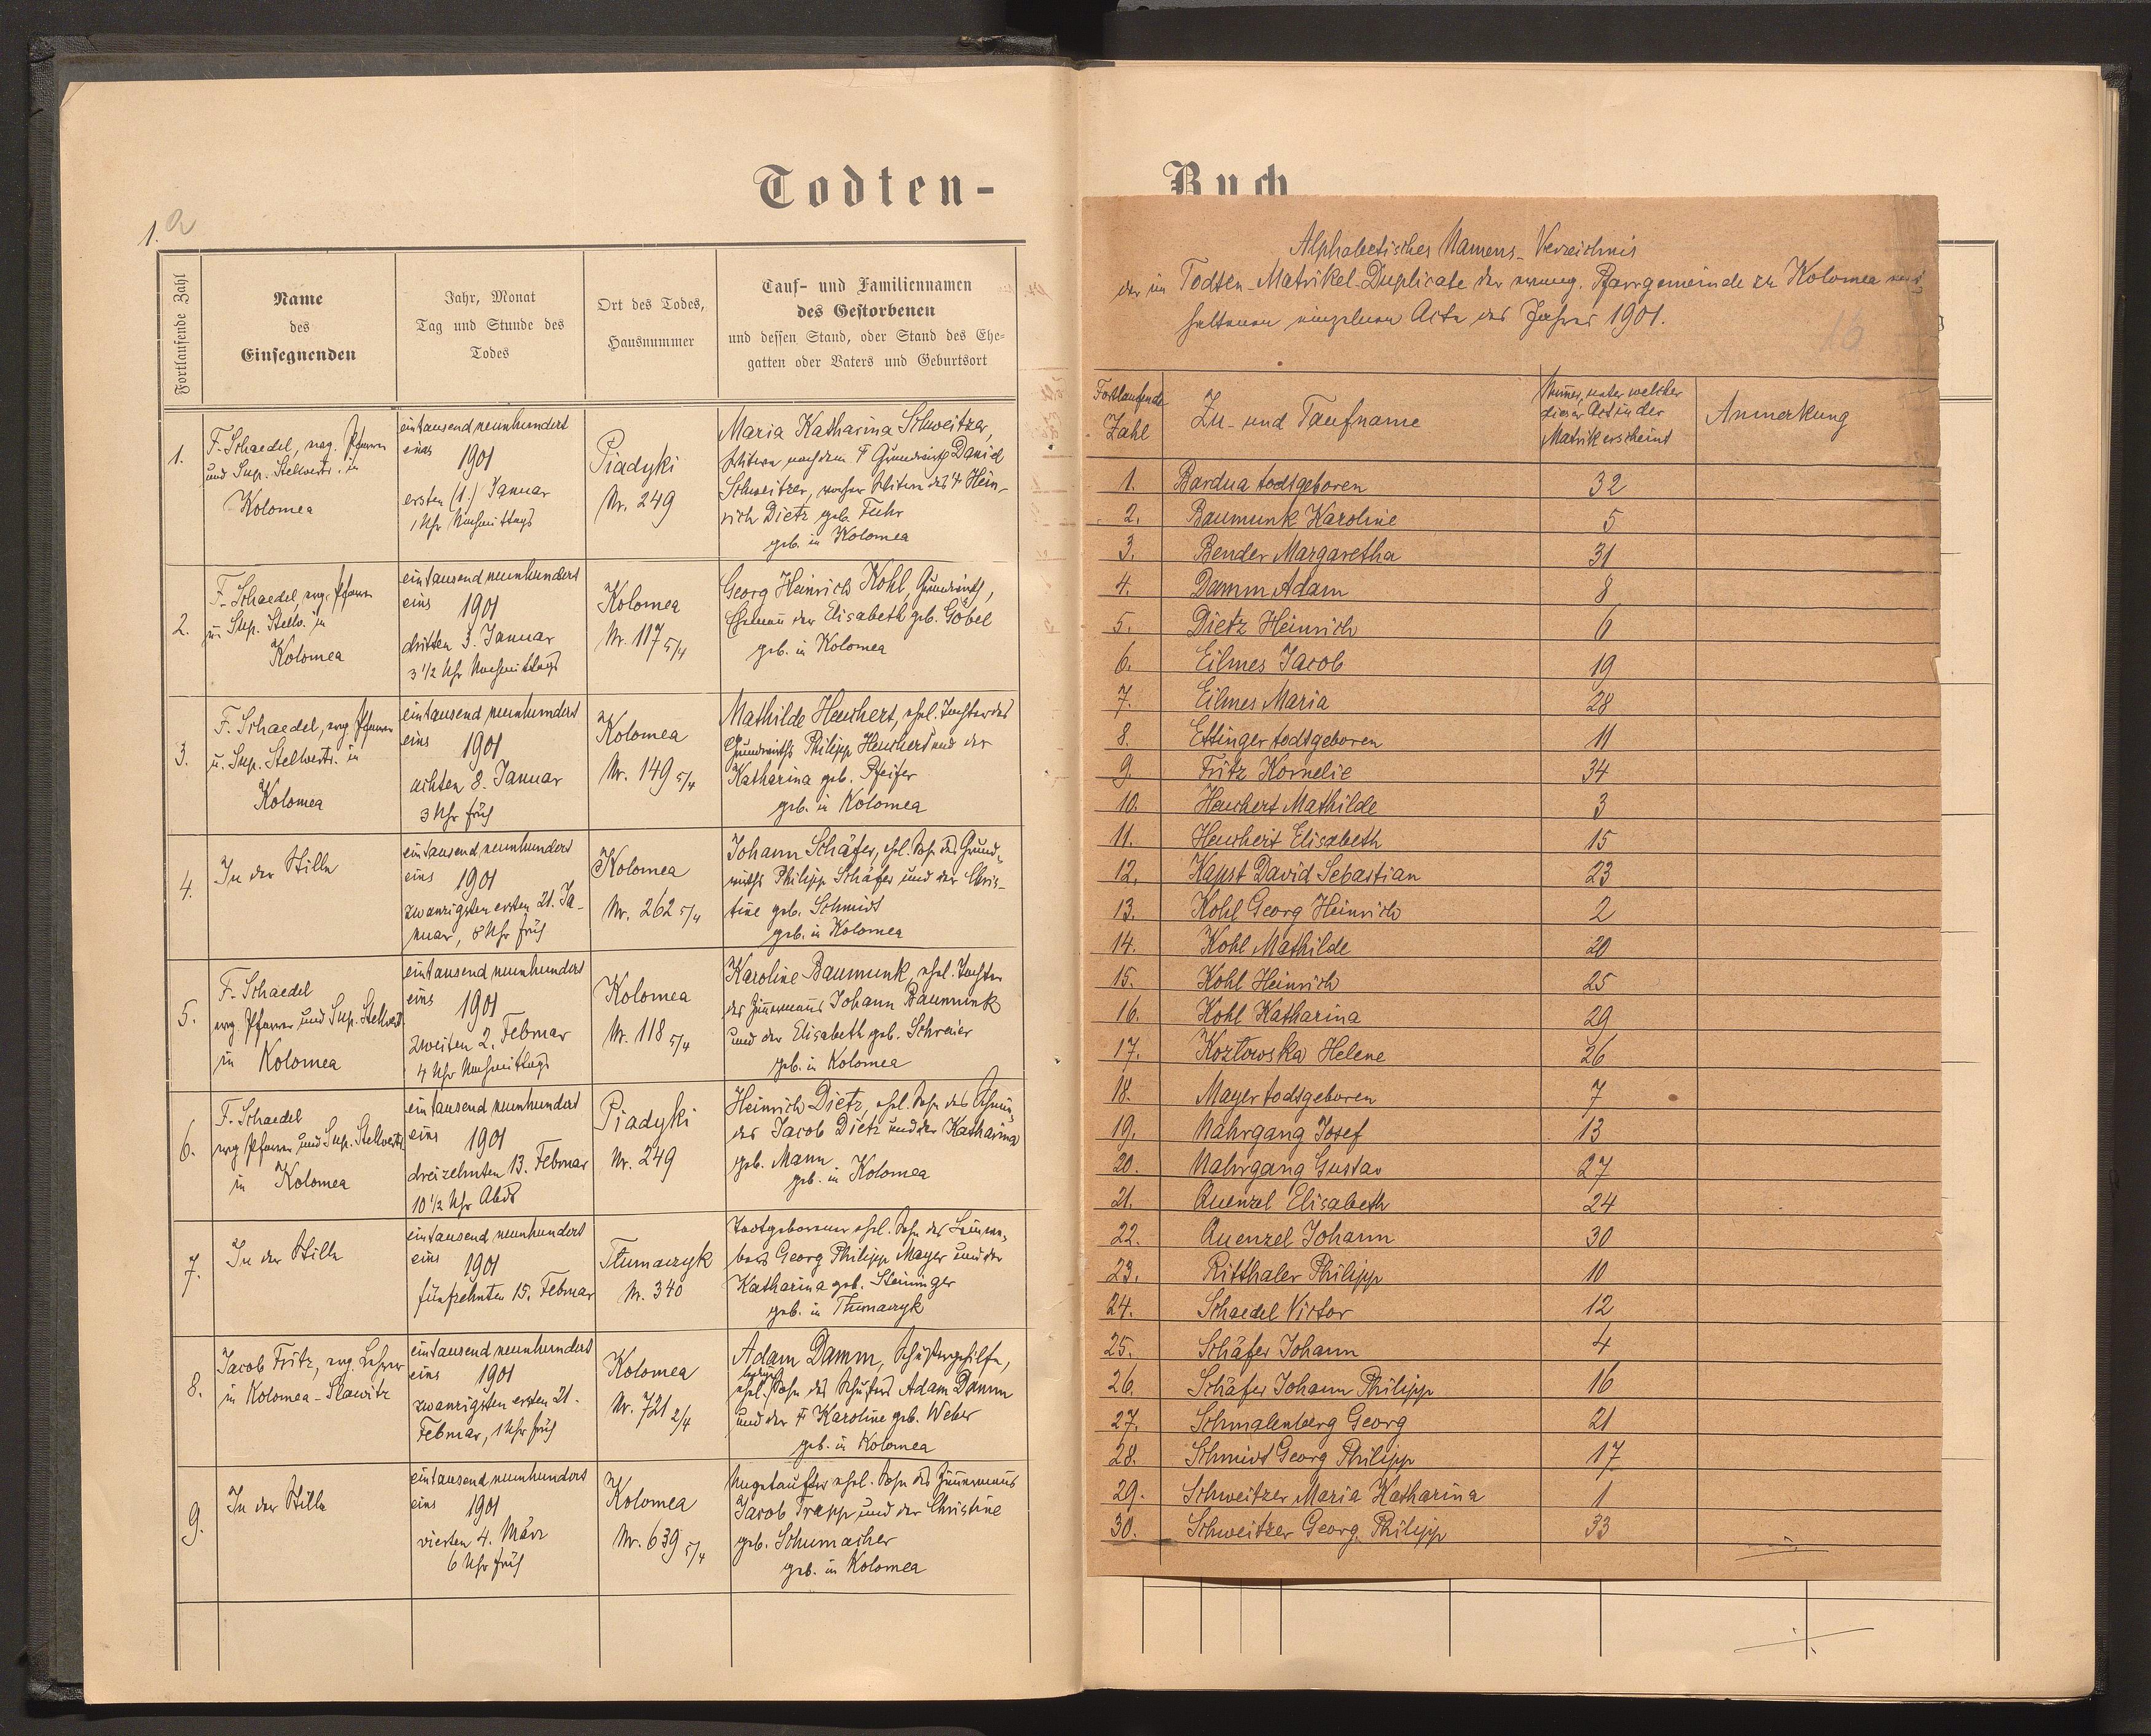 Todten-
1. a
Fortlaufende Zahl
Name
des
Einsegnenden
Jahr, Monat
Tag und Stunde des
Todes
Ort des Todes,
Hausnummer
Tauf- und Familiennamen
des Gestorbenen
und dessen Stand, oder Stand des Ehe-
gatten oder Vaters und Geburtsort
1.
F. Schaedel, evg. Pfarrer
und Sup. Stellvertr. in
Kolomea
eintausend neunhundert
eins 1901
ersten (1.) Januar
1 Uhr Nachmittags
Piadyki
Nr. 249
Maria Katharina Schweitzer,
Witwe nach dem † Grundwirth Daniel
Schweitzer, vorher Witwe des † Hein-
rich Dietz geb. Fuhr
geb. in Kolomea
2.
F. Schaedel, evg. Pfarrer
u. Sup. Stellv. in
Kolomea
eintausend neunhundert
eins 1901
dritten 3. Januar
3 1/2 Uhr Nachmittags
Kolomea
Nr. 117 5/4
Georg Heinrich Kohl, Grundwirth,
Ehemann der Elisabeth geb. Göbel
geb. in Kolomea
3.
F. Schaedel, evg. Pfarrer
u. Sup. Stellvertr. in
Kolomea
eintausend neunhundert
eins 1901
achten 8. Januar
3 Uhr früh
Kolomea
Nr. 149 5/4
Mathilde Heuchert, ehel. Tochter des
Grundwirths Philipp Heuchert und der
Katharina geb. Pfeifer
geb. in Kolomea
4.
In der Stille
eintausend neunhundert
eins 1901
zwanzigsten ersten 21. Ja-
nuar, 8 Uhr früh
Kolomea
Nr. 262 5/4
Johann Schäfer, ehel. Sohn des Grund-
wirths Philipp Schäfer und der Chris-
tine geb. Schmidt
geb. in Kolomea
5.
F. Schaedel
evg. Pfarrer und Sup. Stellvert.
in Kolomea
eintausend neunhundert
eins 1901
zweiten 2. Februar
4 Uhr Nachmittags
Kolomea
Nr. 118 5/4
Karoline Baumunk, ehel. Tochter
des Zimermans Johann Baumunk
und der Elisabeth geb. Schreier
geb. in Kolomea
6.
F. Schaedel
evg. Pfarrer und Sup. Stellvertr.
in Kolomea
eintausend neunhundert
eins 1901
dreizehnten 13. Februar
10 1/2 Uhr Abds
Piadyki
Nr. 249
Heinrich Dietz, ehel. Sohn des
des Jacob Dietz und der Katharina
geb. Mann
geb. in Kolomea
7.
In der Stille
eintausend neunhundert
eins 1901
fünfzehnten 15. Februar
Tłumaczyk
Nr. 340
Todtgeborener ehel. Sohn des
Georg Philipp Mayer und der
Katharina geb. Steininger
geb. in Tłumaczyk
8.
Jacob Fritz, evg. Lehrer
in Kolomea-Slawitz
eintausend neunhundert
eins 1901
zwanzigsten ersten 21.
Februar, 1 Uhr früh
Kolomea
Nr. 721 2/4
Adam Damm, Schustergehilfe,
lediger
ehel. Sohn des Schusters Adam Damm
und der † Karoline geb. Weber
geb. in Kolomea
9.
In der Stille
eintausend neunhundert
eins 1901
vierten 4. März
6 Uhr früh
Kolomea
Nr. 639 5/4
Ungetaufter ehel. Sohn des Zimermans
Jacob Trapp und der Christine
geb. Schumacher
geb. in Kolomea
Buch
Alphabetisches Namens-Verzeichnis
der im Todten-Matrikel-Duplicate der evang. Pfarrgemeinde zu Kolomea ent-
haltenen einzelnen Acte des Jahres 1901.
16
Fortlaufende
Zahl
Zu- und Taufname
Numer, unter welcher
dieser Act in der
Matrik erscheint
Anmerkung
1. Bardua todtgeboren 32
2. Baumunk Karoline 5
3. Bender Margaretha 31
4. Damm Adam 8
5. Dietz Heinrich 6
6. Eilmes Jacob 19
7. Eilmes Maria 28
8. Ettinger todtgeboren 11
9. Fritz Kornelie 34
10. Heuchert Mathilde 3
11. Heuchert Elisabeth 15
12. Kapst David Sebastian 23
13. Kohl Georg Heinrich 2
14. Kohl Mathilde 20
15. Kohl Heinrich 25
16. Kohl Katharina 29
17. Kozłowska Helene 26
18. Mayer todtgeboren 7
19. Nahrgang Josef 13
20. Nahrgang Gustav 27
21. Quenzel Elisabeth 24
22. Quenzel Johann 30
23. Ritthaler Philipp 10
24. Schaedel Victor 12
25. Schäfer Johann 4
26. Schäfer Johann Philipp 16
27. Schmalenberg Georg 21
28. Schmidt Georg Philipp 17
29. Schweitzer Maria Katharina 1
30. Schweitzer Georg Philipp 33